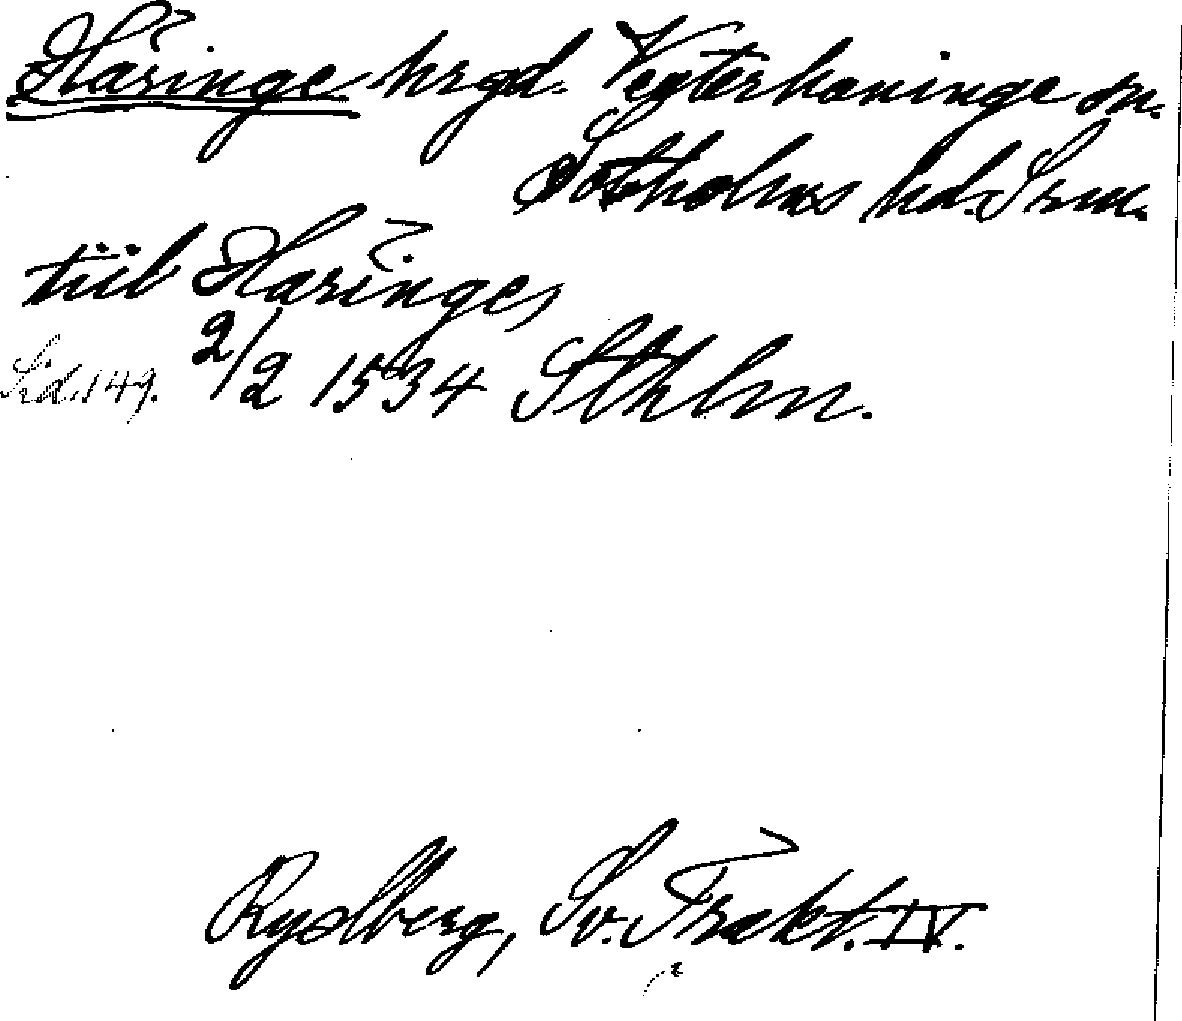 Häringe hrgd. Vesterhaninge sn.
Sotholms hd. Srm.
tiil Haringe,
Sid. 149. 2/2 1534 Sthlm.
Rydberg, Sv. Trakt. IV.